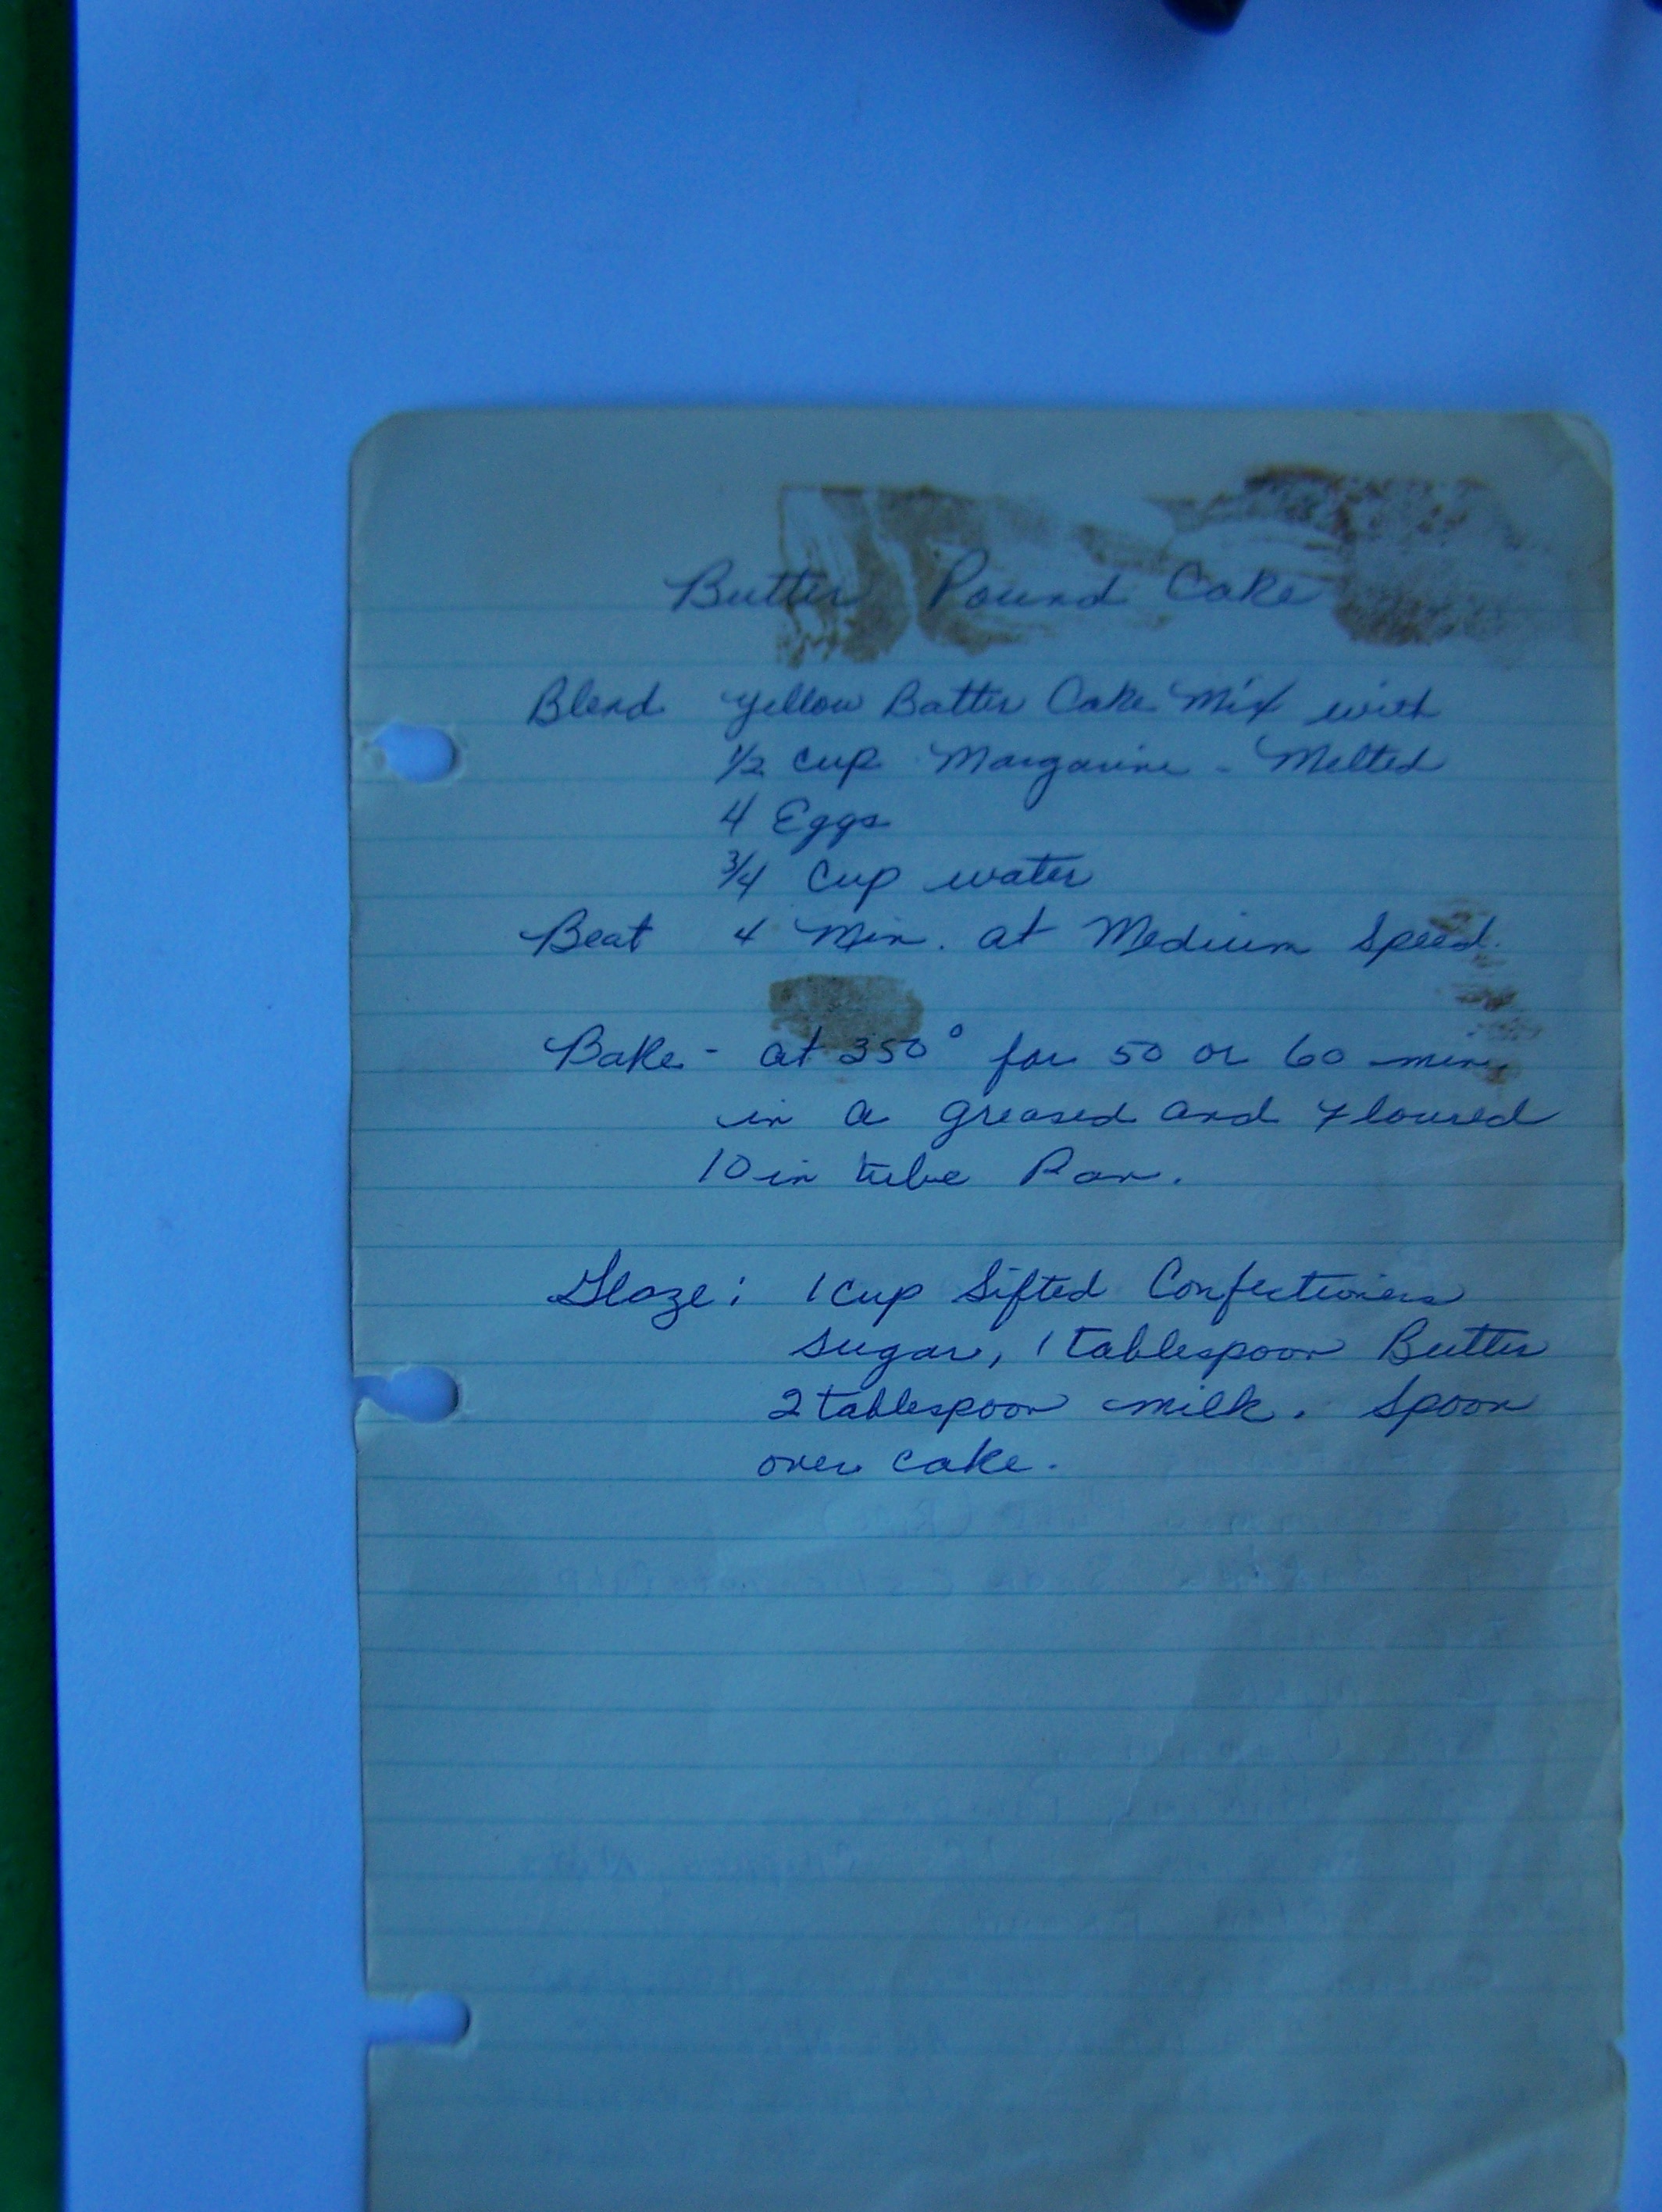 Butter Pound Cake
Blend yellow Batter Cake Mix with
1/2 cup Margarine - Melted
4 Eggs
3/4 cup water
Beat 4 Min. at Medium Speed.
Bake - at 350° for 50 or 60 min.
in a greased and floured
10 in tube Pan.
Glaze: 1 cup Sifted Confectioners
sugar, 1 tablespoon Butter
2 tablespoon milk. Spoon
over cake.